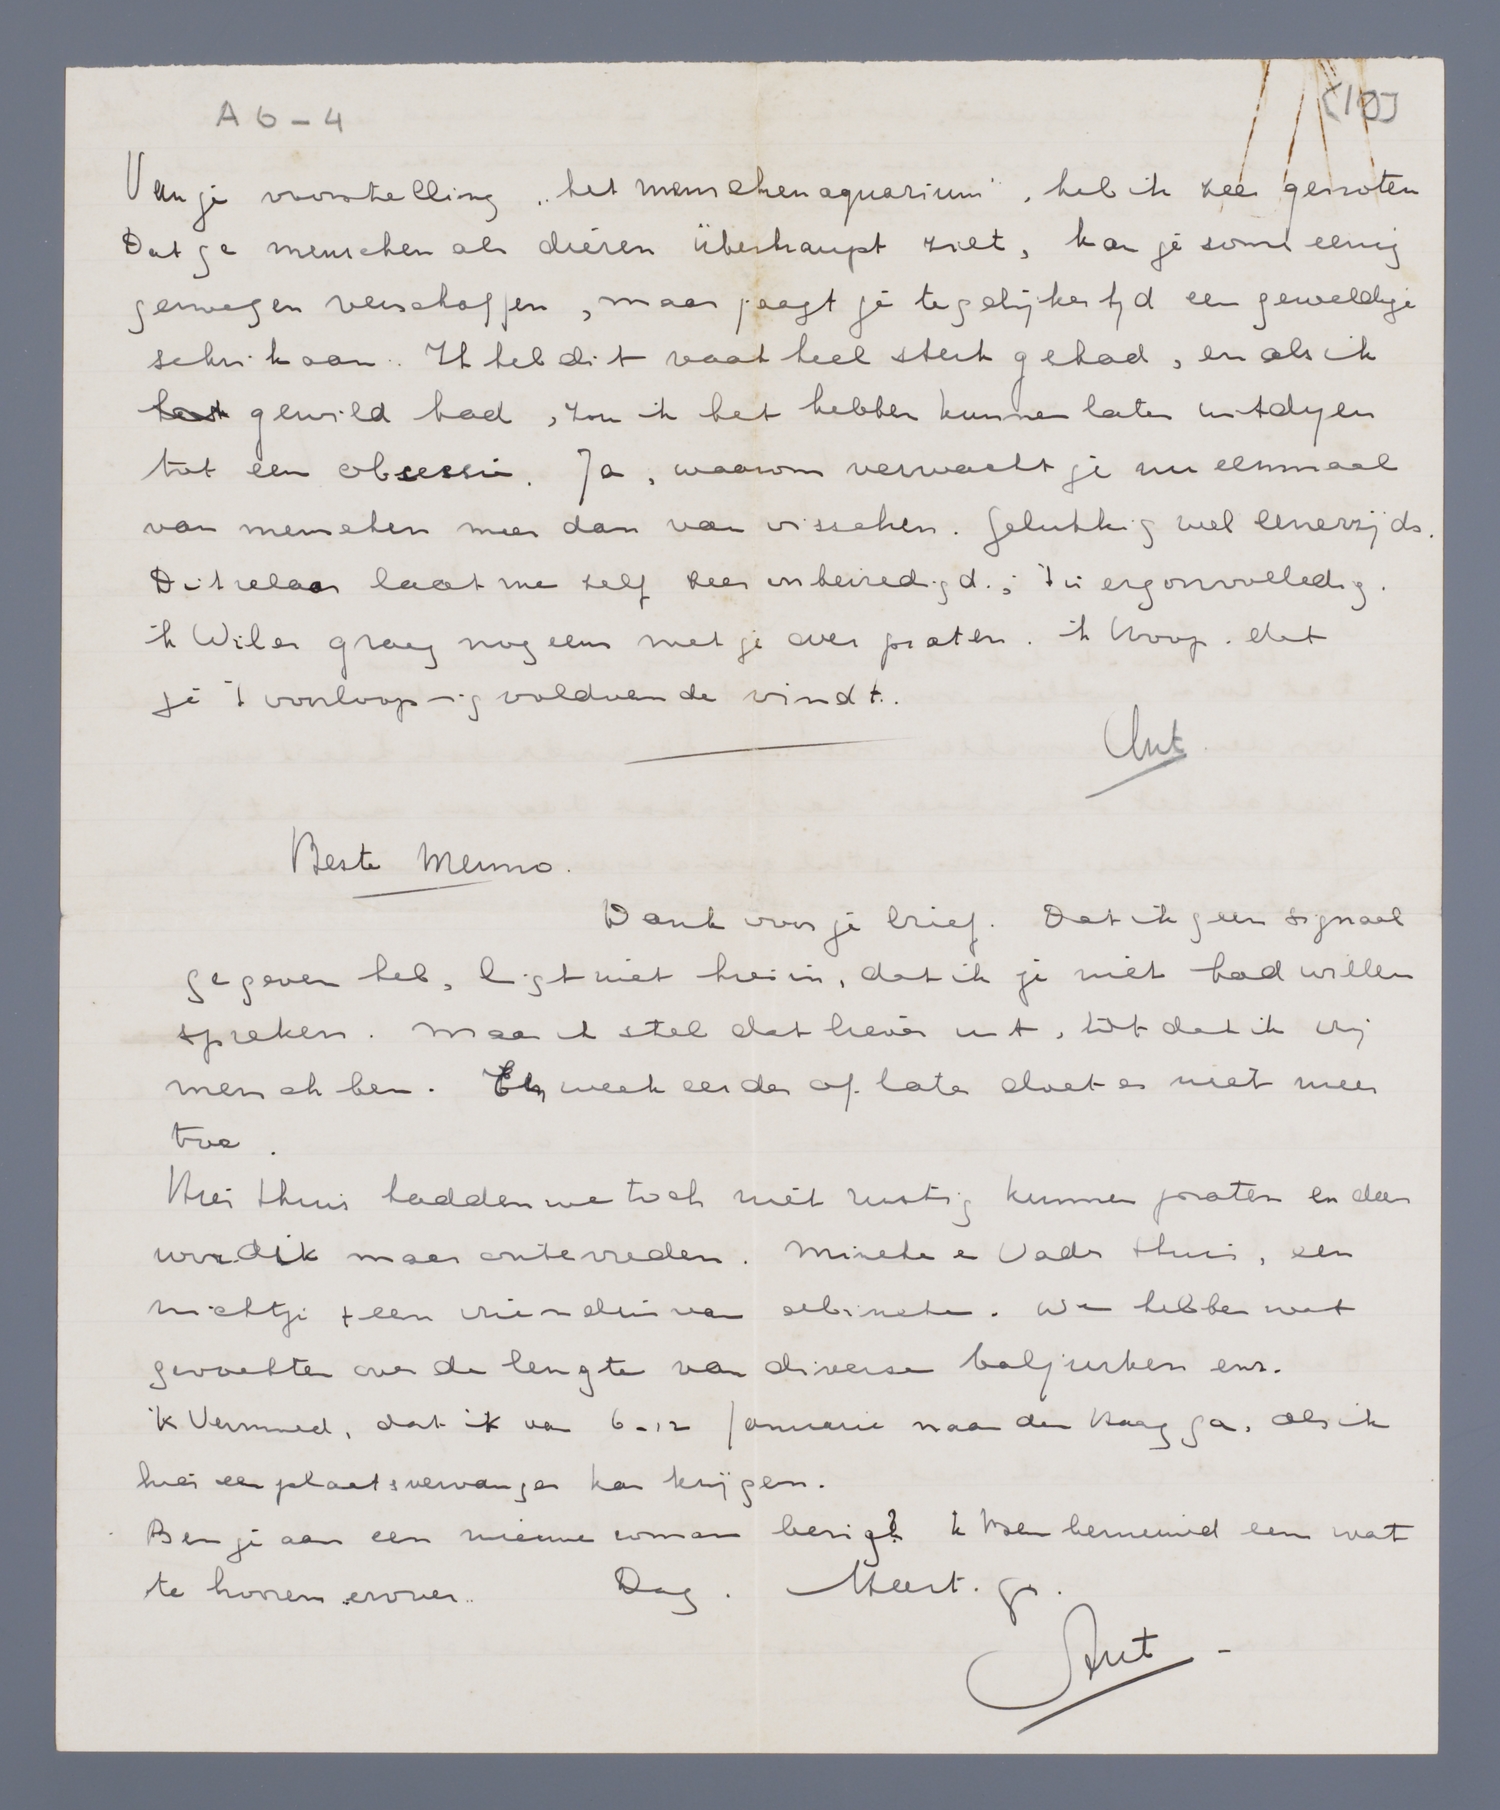 A 6 - 4
[10]
Van je voorstelling „het menschenaquarium", heb ik zeer genoten
Dat je menschen als dieren überhaupt ziet, kan je soms eenig
genoegen verschaffen, maar jaagt je tegelijkertijd een geweldige
schrik aan. Ik heb dit vaak heel sterk gehad, en als ik
gewild had, zou ik het hebben kunnen laten uitdyen
tot een obsessie. Ja, waarom verwacht je nu eenmaal
van menschen meer dan van visschen. Gelukkig wel eenerzijds.
Dit relaas laat me zelf zeer onbevredigd.; 't is erg onvolledig.
ik Wil er graag nog eens met je over praten. ik Hoop. dat
je 't voorloopig voldoende vindt.
Ant.
Beste Menno.
Dank voor je brief. Dat ik geen signaal
gegeven heb, ligt niet hierin, dat ik je niet had willen
spreken. Maar ik stel dat liever uit, tot dat ik vrij
mensch ben. Een week eerder of later doet er niet meer
toe.
Hier thuis hadden we toch niet rustig kunnen praten en dan
word ik maar ontevreden. Mineke en Vader thuis, een
nichtje + een vriendin van. We hebben wat
over de lengte van diverse baljurken enz.
ik Vermoed, dat ik van 6-12 Januarie naar den Haag ga, als ik
hier een plaatsvervanger kan krijgen.
Ben je aan een nieuwe roman bezig? Ik Ben benieuwd eens wat
te hooren erover. Dag. Hart. gr.
Ant -